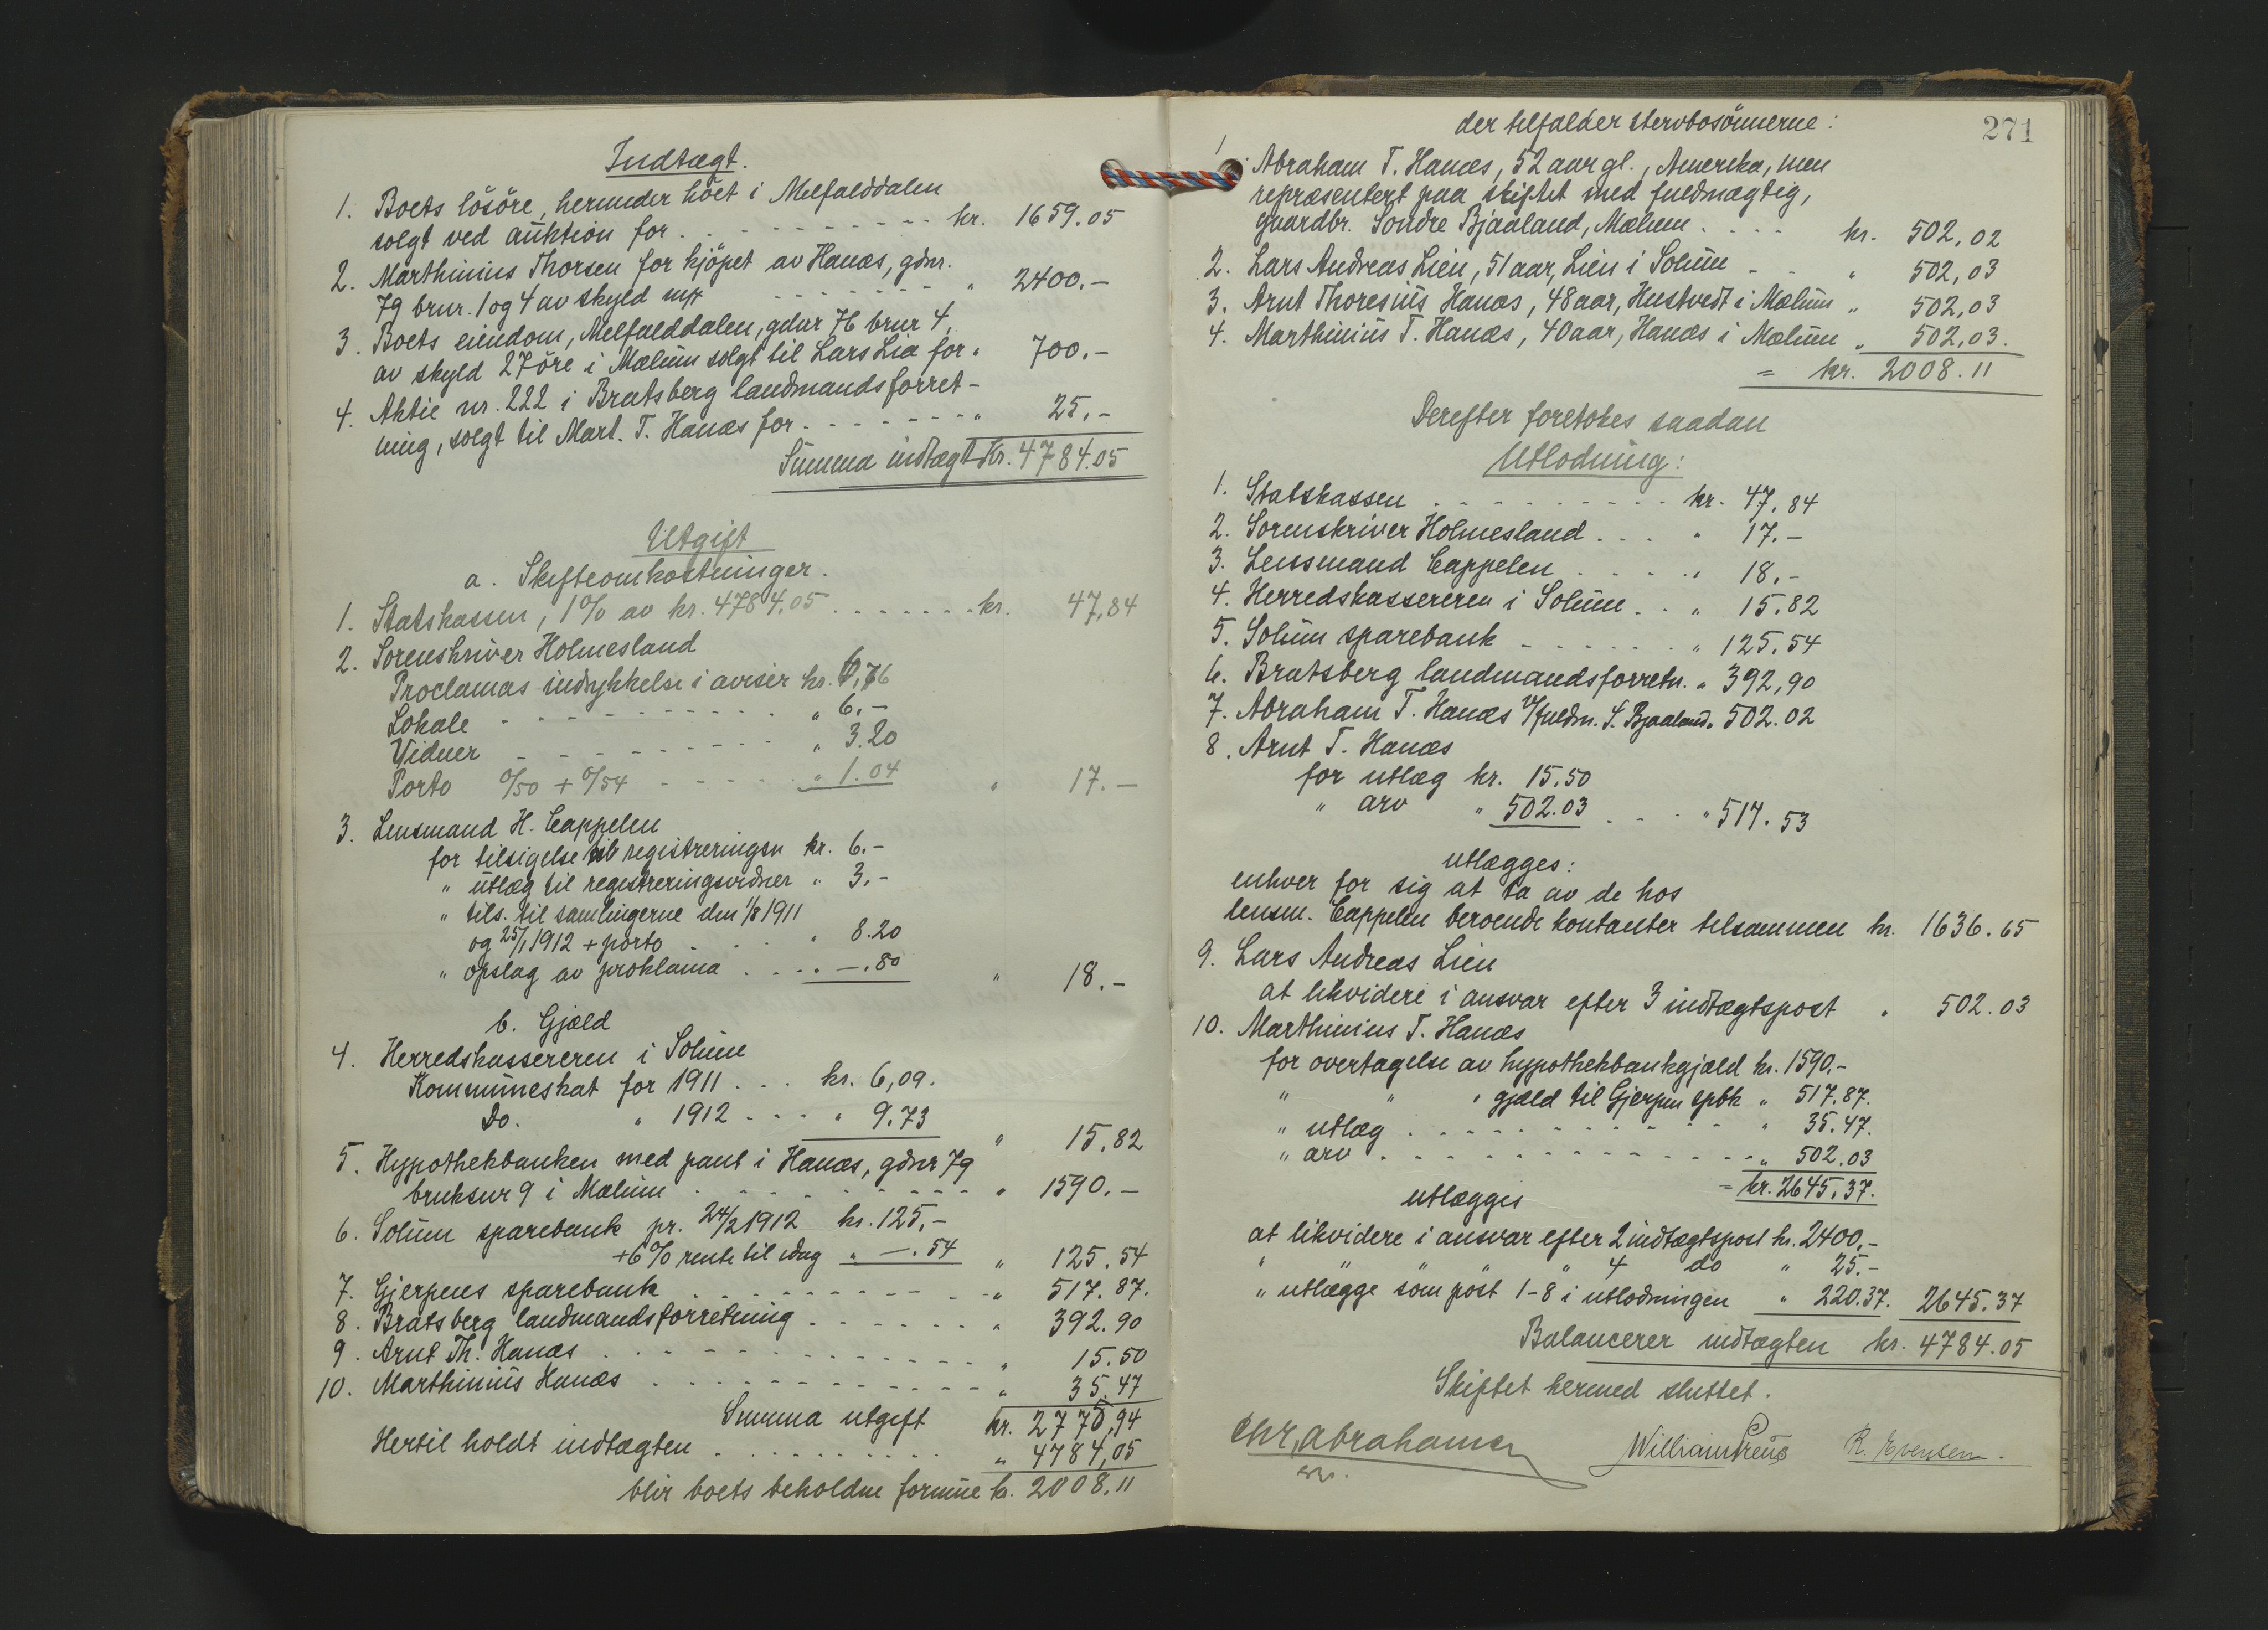 Indtægt.
1. Boets lösöre, herunder höet i Melfalddalen
solgt ved auktion for . . . . . . . . . kr. 1659.05
2. Marthinius Thorsen for kjöpet av Hanæs, gdnr.
79 brnr. 1 og 4 av skyld mk . . . . . . . " 2400.-
3. Boets eiendom, Melfalddalen, gdnr 76 brnr 4,
av skyld 27 öre i Mælum solgt til Lars Lia for " 700.-
4. Aktie nr. 222 i Bratsberg landmandsforret-
ning, solgt til Mart. T. Hanæs for . . . . . . " 25.-
Summa indtægt Kr. 4784.05
Utgift
a. Skifteomkostninger.
1. Statskassen, 1% av kr. 4784.05 . . . . . . . kr. 47,84
2. Sorenskriver Holmesland
Proclamas indrykkelse i aviser kr. 6,76
Lokale . . . . . . . . . " 6.-
Vidner . . . . . . . . . " 3.20
Porto 0/50 + 0/54 . . . . . " 1.04 " 17.-
3. Lensmand H. Cappelen
for tilsigelse til registreringen kr. 6.-
" utlæg til registreringsvidner " 3.-
" tils. til samlingerne den 1/8 1911
og 25/1 1912 + porto . . . . " 8.20
" opslag av proklama . . . . -.80 " 18.-
b. Gjæld
4. Herredskassereren i Solum
Kommuneskat for 1911 . . . kr. 6,09.
Do. " 1912 . . . " 9.73 " 15.82
5. Hypothekbanken med pant i Hanæs, gdnr 79
bruksnr 9 i Mælum . . . . . . . . . " 1590.-
6. Solum sparebank pr. 24/2 1912 kr. 125.-
+6% rente til idag " -.54 " 125.54
7. Gjerpens sparebank . . . . . . . . . " 517.87.
8. Bratsberg landmandsforretning . . . . . . " 392.90
9. Arnt Th. Hanæs . . . . . . . . . . . " 15.50
10. Marthinius Hanæs . . . . . . . . . . " 35.47
Summa utgift kr. 2775,94
Hertil holdt indtægten . . . . . . . . " 4784,05
blir boets beholdne formue kr. 2008.11
271
der tilfalder stervbosönnerne:
1. Abraham T. Hanæs, 52 aar gl., Amerika, men
repræsentert paa skiftet med fuldmægtig,
gaardbr. Söndre Bjaaland, Mælum . . . . kr. 502,02
2. Lars Andreas Lien, 51 aar, Lien i Solum - - " 502,03
3. Arnt Thoresius Hanæs, 48 aar, Hustvedt i Mælum " 502,03
4. Marthinius T. Hanæs, 40 aar, Hanæs i Mælum " 502,03.
= kr. 2008.11
Derefter foretokes saadan
Utlodning:
1. Statskassen . . . . . . . . . . kr. 47,84
2. Sorenskriver Holmesland . . . " 17.-
3. Lensmand Cappelen . . . . . " 18.-
4. Herredskassereren i Solum . . " 15.82
5. Solum sparebank . . . . . . " 125.54
6. Bratsberg landmandsforretn. " 392,90
7. Abraham T. Hanæs v/fuldm. S. Bjaaland " 502.02
8. Arnt T. Hanæs
for utlæg kr. 15.50
" arv " 502.03 . . . " 517.53
utlægges:
enhver for sig at ta av de hos
lensm. Cappelen beroende kontanter tilsammen kr. 1636.65
9. Lars Andreas Lien
at likvidere i ansvar efter 3 indtægtspost " 502.03
10. Marthinius T. Hanæs
for overtagelse av hypothekbankgjæld kr. 1590.-
" " " gjæld til Gjerpen spbk " 517.87.
" utlæg . . . . . . . . . . . " 35.47.
" arv . . . . . . . . . . . . " 502.03
= kr. 2645.37.
utlægges
at likvidere i ansvar efter 2 indtægtspost kr. 2400.-
" " " " 4 do " 25.-
" utlægge som post 1-8 i utlodningen " 220.37. 2645.37
Balancerer indtægten kr. 4784.05
Skiftet hermed sluttet.
Chr. Abrahamsen William Preus R. Evensen.